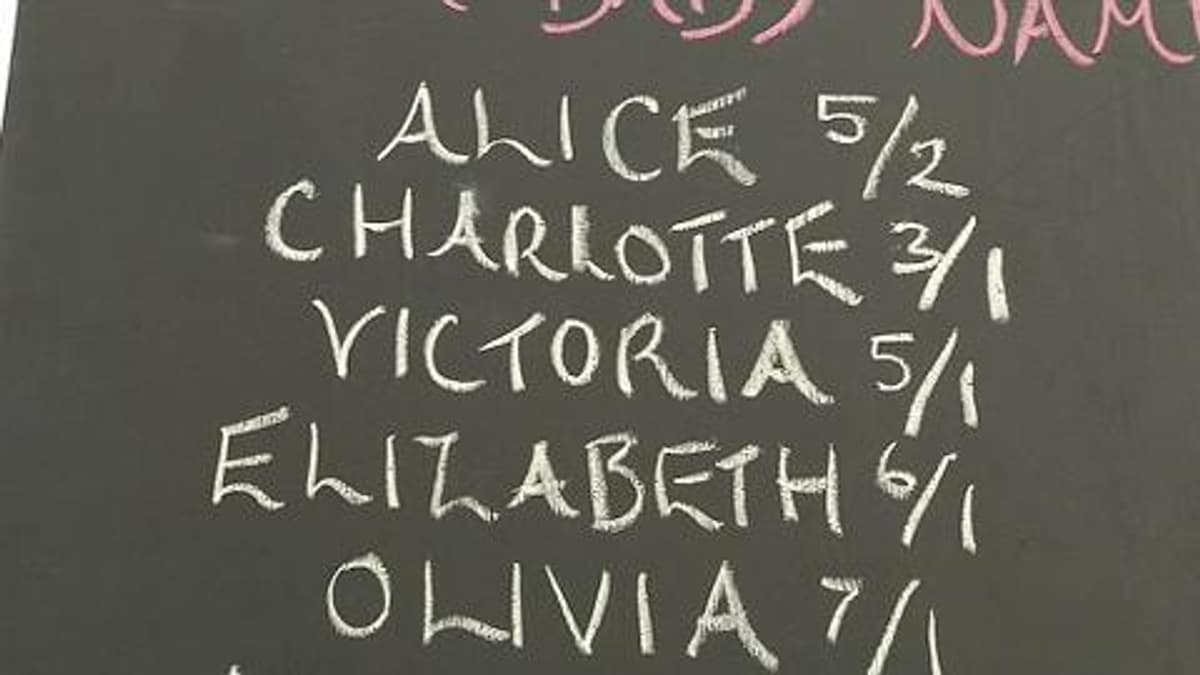 (BABY NAM
ALICE 5/2
CHARLOTTE 3/1
VICTORIA 5/1
ELIZABETH 6/1
OLIVIA 7/1